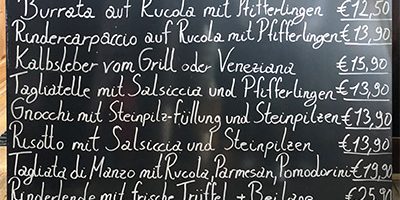 Burrata auf Rucola mit Pfifferlingen €12,50
Rindercarpaccio auf Rucola mit Pfifferlingen €13,90
Kalbsleber vom Grill oder Veneziana €15,90
Tagliatelle mit Salsiccia und Pfifferlingen €13,90
Gnocchi mit Steinpilz-füllung und Steinpilzen €13,90
Risotto mit Salsiccia und Steinpilzen €13,90
Tagliata di Manzo mit Rucola, Parmesan, Pomodorini €19,90
Rinderlende mit frische Trüffel + Beilage €25,90